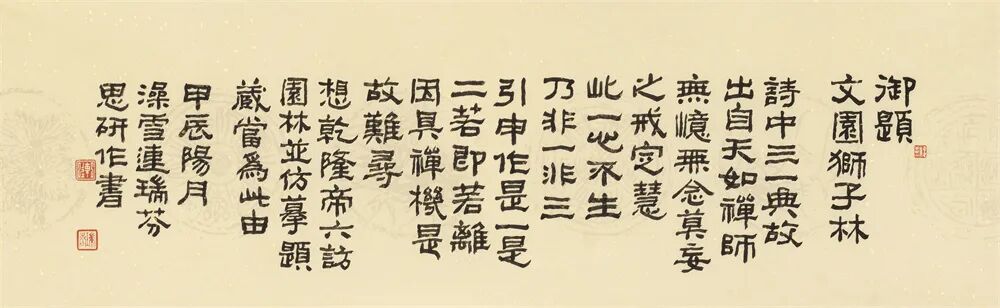 御題
文園獅子林
詩中三一典故
出自天如禪師
無憶無念莫妄
之戒定慧
此一心不生
乃非一非三
引申作是一是
二若即若離
因具禪機是
故難尋
想乾隆帝六訪
園林並仿摹題
蔵當為此由
甲辰陽月
澡雪連瑞芬
思研作書